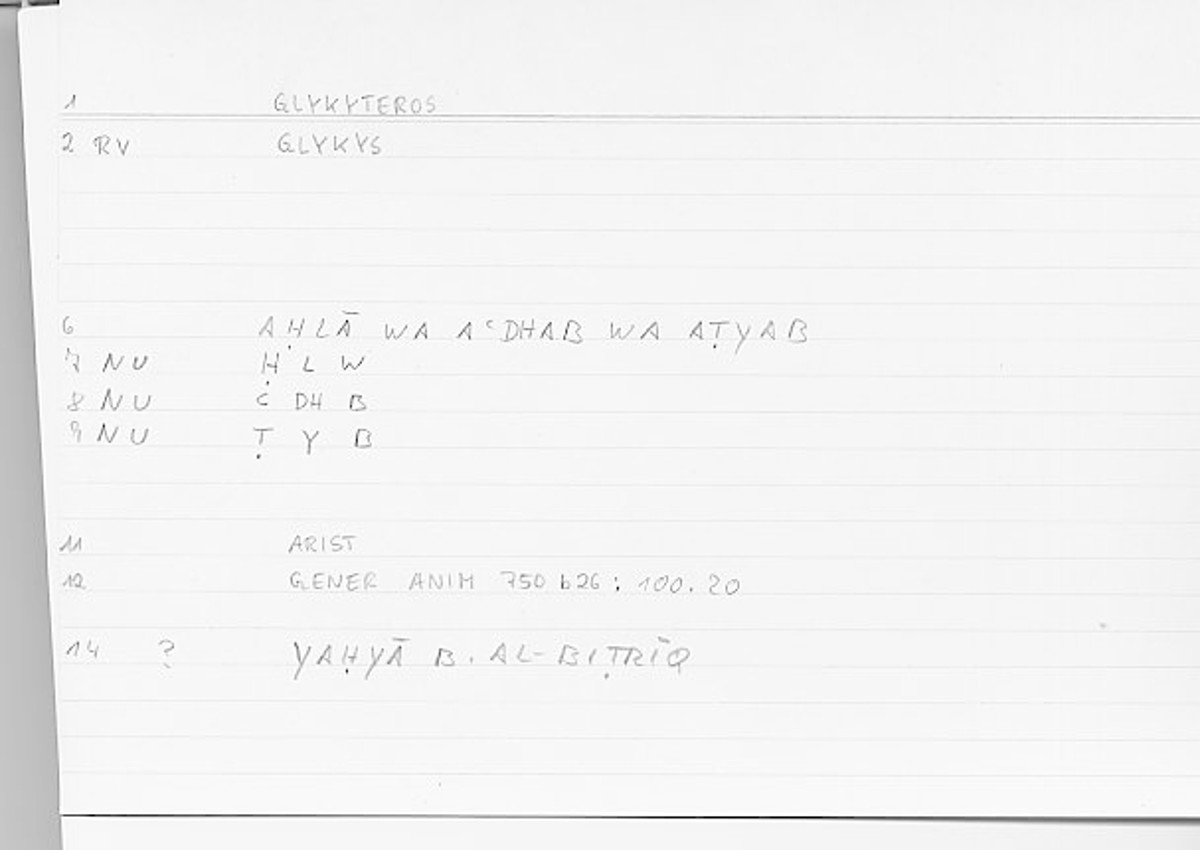 1 GLYKYTEROS
2 RV GLYKYS
6 AḤLĀ WA AʿDHAB WA AṬYAB
7 NU Ḥ L W
8 NU ʿ DH B
9 NU Ṭ Y B
11 ARIST
12 GENER ANIM 750 b26 : 100. 20
14 ? YAḤYĀ B. AL-BIṬRĪQ